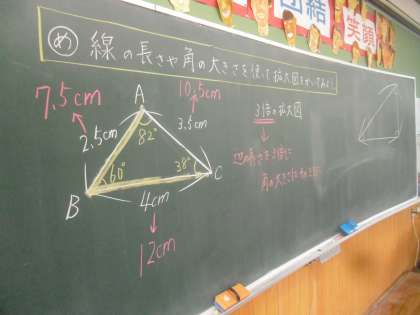 団結
笑顔
め 線の長さや角の大きさを使って拡大図をかいてみよう
7.5cm
10.5cm
A
2.5cm
82°
3.5cm
60°
38°
B
C
4cm
12cm
3倍の拡大図
辺の長さを3倍に
角の大きさは